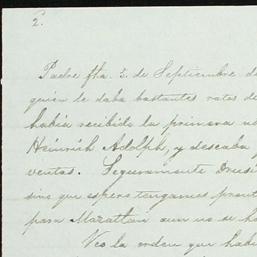 2.
Padre fha. 3. de Septiembre de
quien le daba bastantes ratos de
habia recibido la primera no
Heinrich Adolph, y deseaba
ventas. Seguramente
sino que espero tengamos pront
para Mazatlan aun no se h
Veo la orden que habi